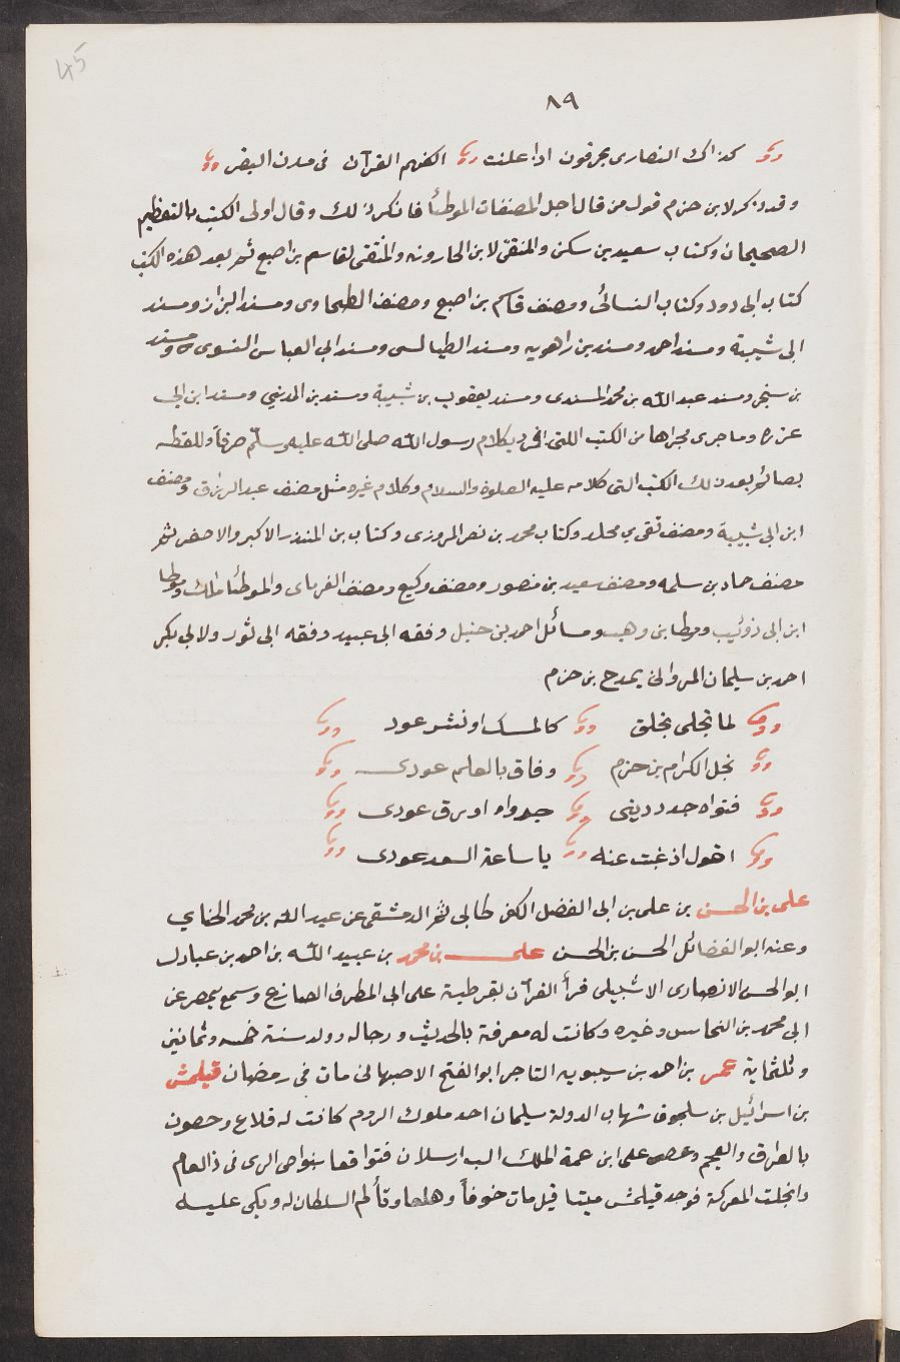 45
٨٩
كذاك النصارى يحرقون اذا علنت اكفهم القرآن فى مدن الثغر
وقد ذكر لابن حزم قول من قال اجل المصنفات الموطأ فانكر ذلك وقال اولى الكتب بالتعظيم
الصحيحان وكتاب سعيد بن سكن والمنقى لابن الجارود والمنقى لقاسم بن اصبغ ثم بعد هذه الكتب
كتاب ابى دود وكتاب النسائى ومصنف قاسم بن اصبع ومصنف الطحاوى ومسند البزار ومسند
ابى شيبة ومسند احمد ومسند بن راهويه ومسند الطيالسى ومسند ابى العباس النسوى ومسند
بن سنجر ومسند عبد الله بن محمد المسندى ومسند يعقوب بن شيبة ومسند بن المدينى ومسند ابن ابى
عزره وما جرى مجراها من الكتب اللتى افردت بكلام رسول الله صلى الله عليه وسلم صرفاً وللفظه
بصا ثم بعد ذلك الكتب التى كلامه عليه الصلوة والسلام وكلام غيره مثل مصنف عبد الرزاق ومصنف
ابن ابى شيبة ومصنف بقى بن مخلد وكتاب محمد بن نصر المروزى وكتاب بن المنذر الاكبر والاصغر ثم
مصنف حماد بن سلمه ومصنف سعيد بن منصور ومصنف وكيع ومصنف الفرياى والموطأ مالك وموطا
ابن ابى ذوئيب وموطا بن وهب ومسائل احمد بن حنبل وفقه ابى عبيد وفقه ابى ثور ولابى بكر
احمد بن سليمان المروانى يمدح بن حزم
لما تحلى بخلق كالمسك او نشر عود
نجل الكرام بن حزم وفاق بالعلم عودى
فتواه جدد دينى جدواه اورق عودى
اقول اذ غبت عنه يا ساعة السعد عودى
على بن الحسن بن على بن ابى الفضل الكفرطابى ثم الدمشقى عن عبد الله بن محمد الحناي
وعنه ابو الفضائل الحسن بن الحسن على بن محمد بن عبيد الله بن احمد بن عبادل
ابو الحسن الانصارى الاشبيلى قرأ القرآن بقرطبة على ابى المطرف الصانع وسمع بمصر عن
ابى محمد بن النحاس وغيره وكانت له معرفة بالحديث ورجاله وولد سنة خمسه وثمانين
وثلثماية عمر بن احمد بن سيبويه التاجر ابو الفتح الاصبهانى مات فى رمضان قيلمش
بن اسرائيل بن سلجوق شهاب الدولة سليمان احد ملوك الروم كانت له قلاع وحصون
بالعراق والعجم وعصى على ابن عمه الملك الب ارسلان فتواقعا بنواحى الرى فى ذا العام
وانجلت المعركة فوجد قيلمش ميتا قيل مات خوفاً وهلعا وتألم السلطان له وبكى عليه